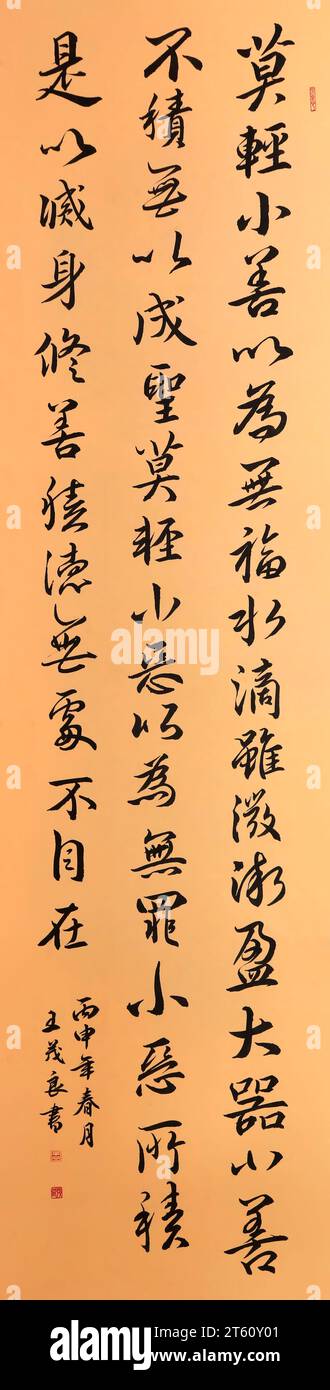 莫輕小善以為無福水滴雖微漸盈大器小善
不積無以成聖莫輕小惡以為無罪小惡所積
是以滅身修善積德無處不自在
丙申年春月
王茂良書
alamy
alamy
Image ID: 2T60Y01
www.alamy.com